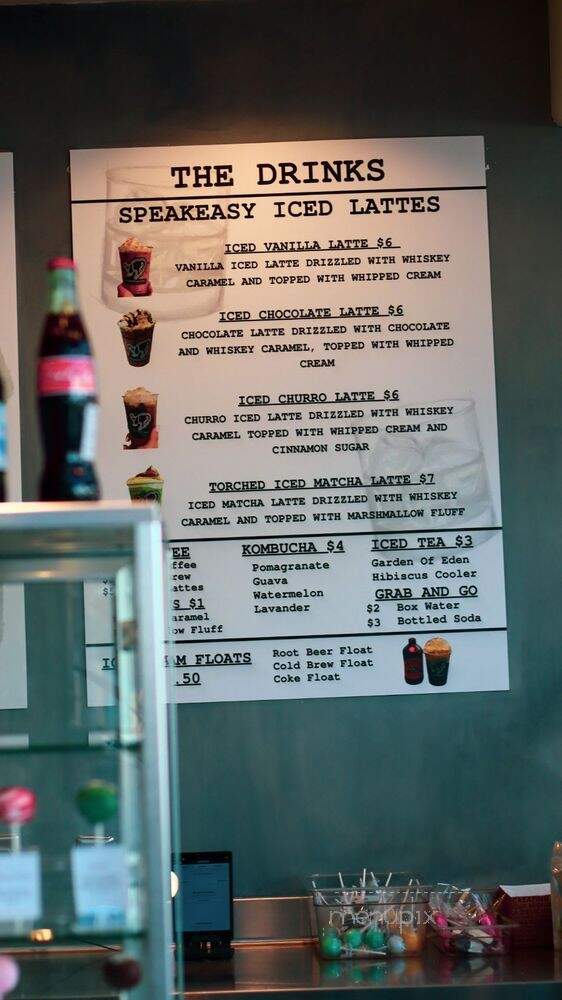 THE DRINKS
SPEAKEASY ICED LATTES
ICED VANILLA LATTE $6
VANILLA ICED LATTE DRIZZLED WITH WHISKEY
CARAMEL AND TOPPED WITH WHIPPED CREAM
ICED CHOCOLATE LATTE $6
CHOCOLATE LATTE DRIZZLED WITH CHOCOLATE
AND WHISKEY CARAMEL, TOPPED WITH WHIPPED
CREAM
ICED CHURRO LATTE $6
CHURRO ICED LATTE DRIZZLED WITH WHISKEY
CARAMEL TOPPED WITH WHIPPED CREAM AND
CINNAMON SUGAR
TORCHED ICED MATCHA LATTE $7
ICED MATCHA LATTE DRIZZLED WITH WHISKEY
CARAMEL AND TOPPED WITH MARSHMALLOW FLUFF
KOMBUCHA $4
Pomagranate
Guava
Watermelon
Lavander
ICED TEA $3
Garden Of Eden
Hibiscus Cooler
GRAB AND GO
$2 Box Water
$3 Bottled Soda
$1
Fluff
FLOATS
.50
Root Beer Float
Cold Brew Float
Coke Float
menupix